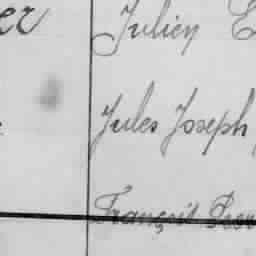 er Julien
Jules Joseph
François